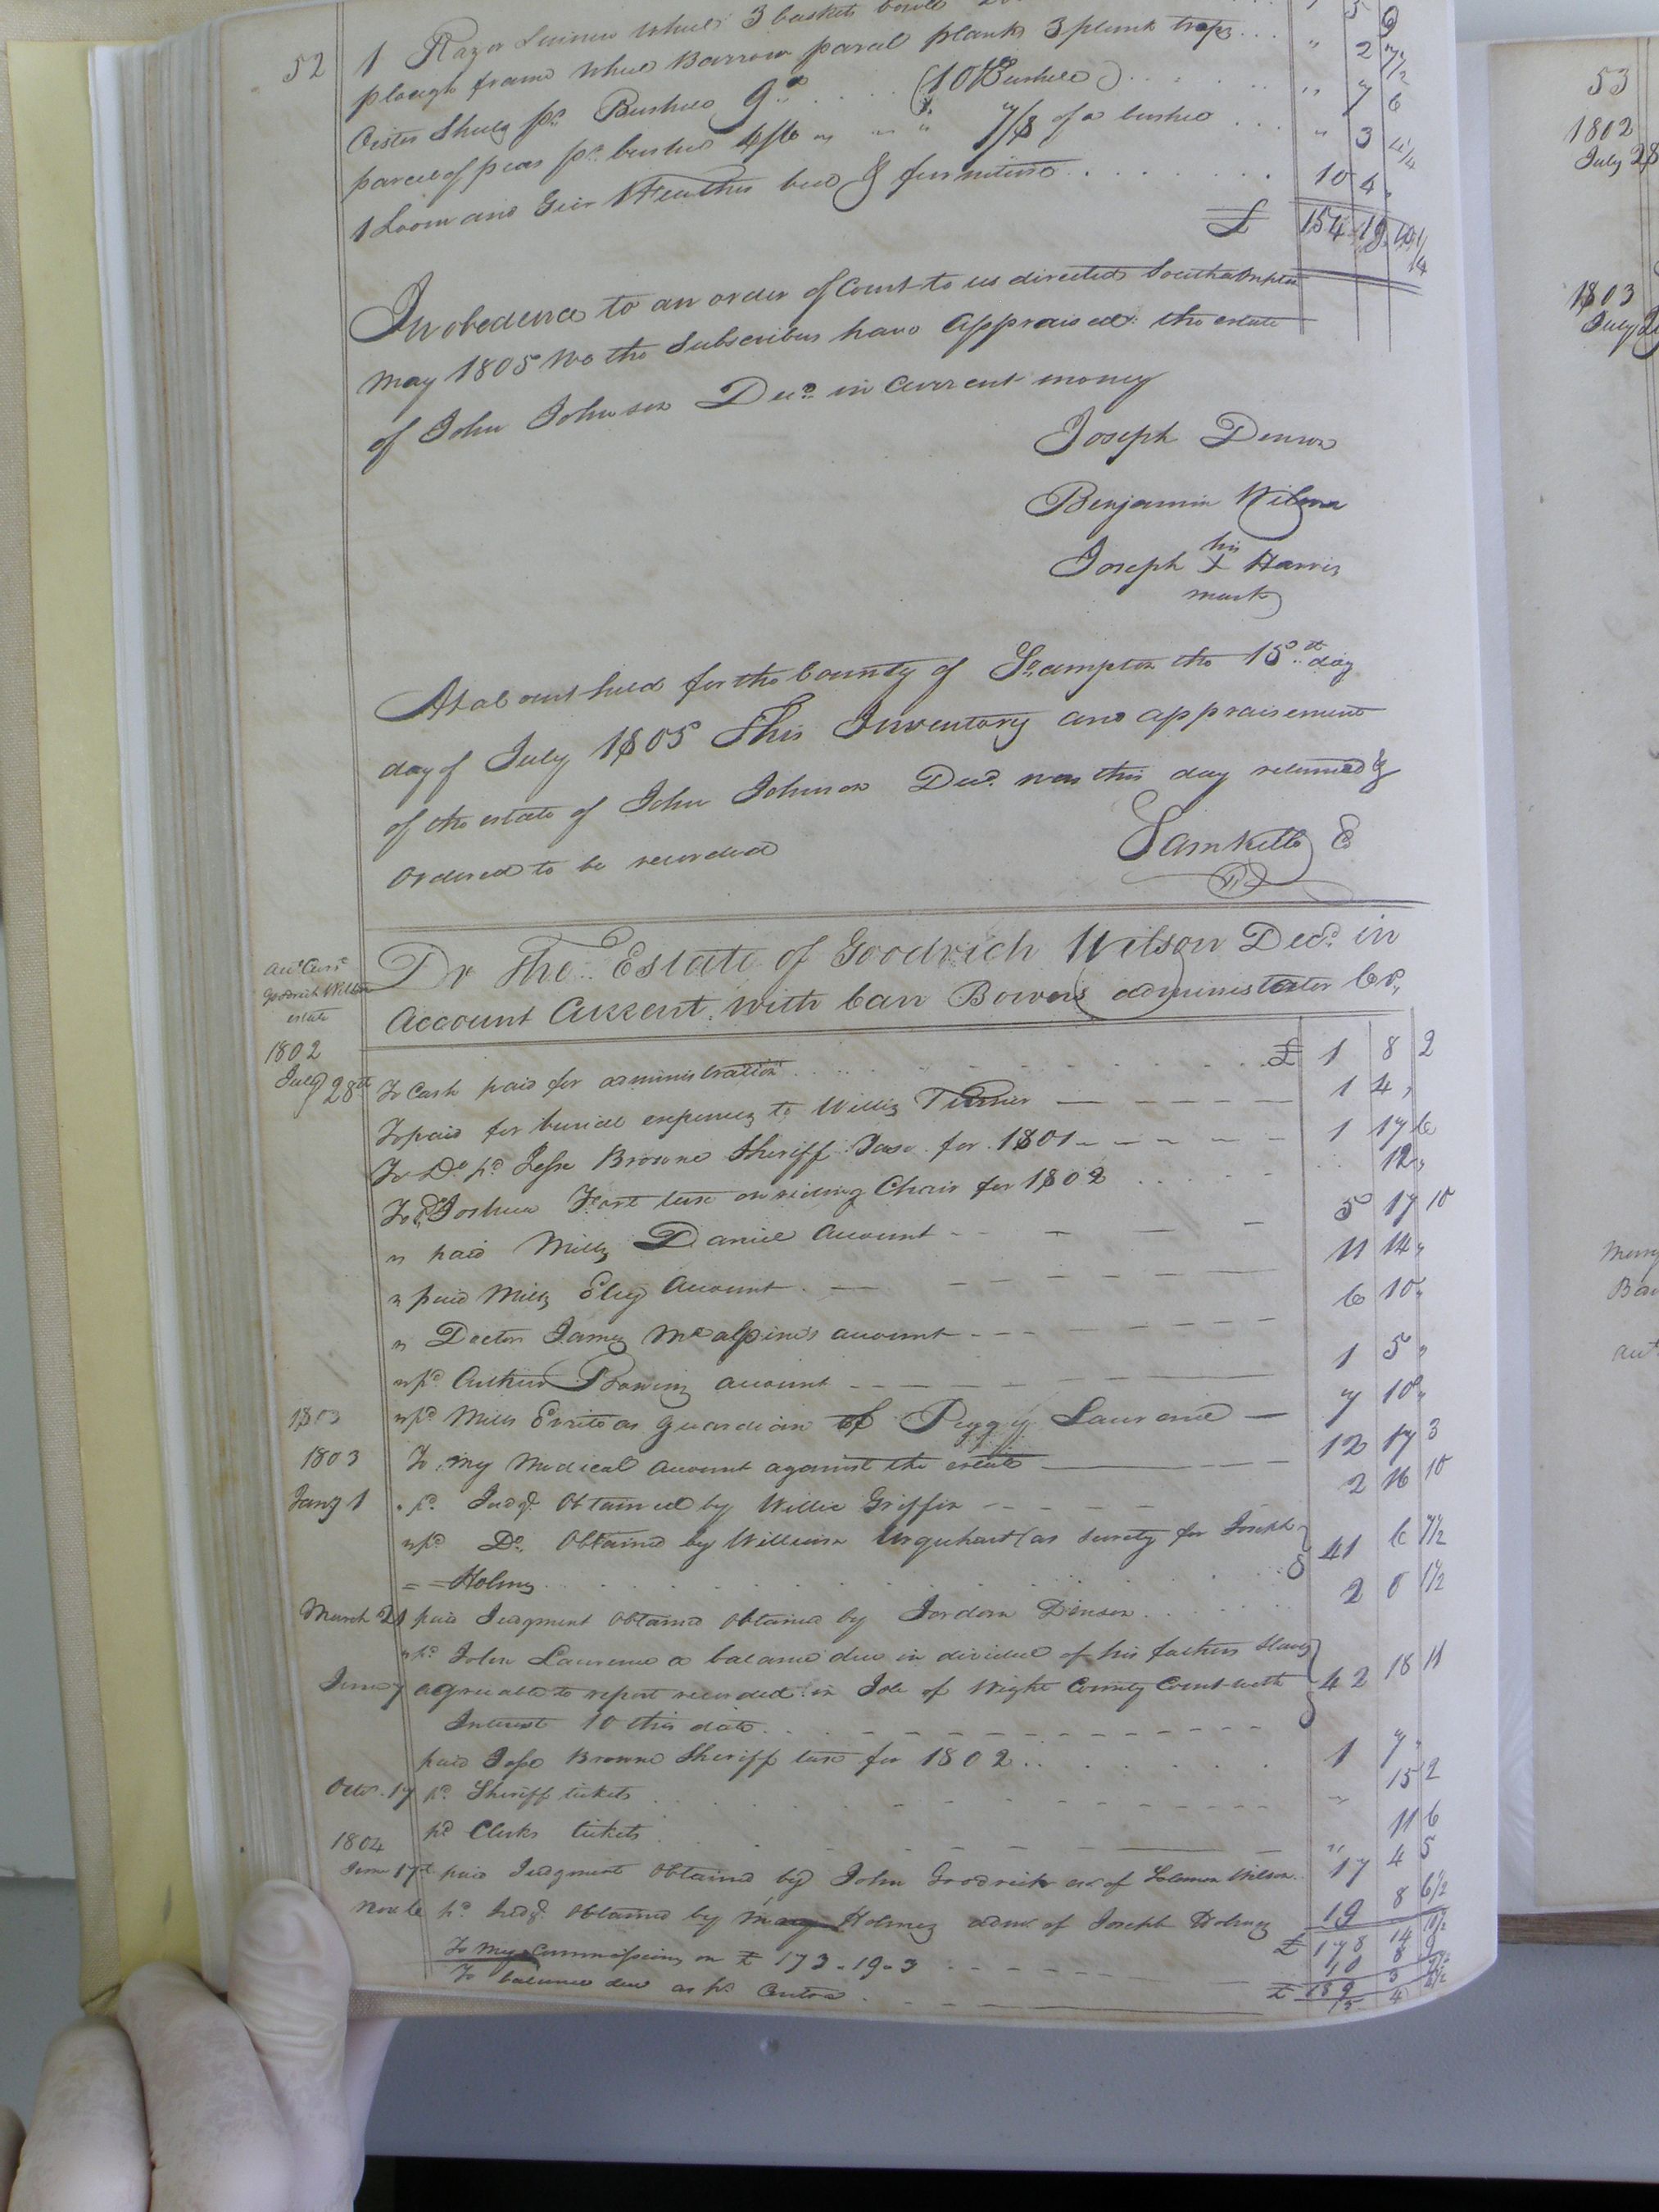 52
1 Razor Linnen Wheel 3 baskets 5 9
plough frame wheel Barrow parcel plank 3 plank traps . . . " 2 7 1/2
Oister Shells pr. Bushel 9d . . . . (10 Bushels) . . . . " 7 6
parcel of peas pr. bushel 4/6 " " " 7/8 of a bushel . . . " 3 11 1/4
1 Loom and Geir 1 Feather bed & furniture . . . . . . . . 10 4 "
£ 154 19 10 1/4
In obedience to an order of Court to us directed Southampton
May 1805 We the Subscribers have Appraised the estate
of John Johnson Decd. in Current money
Joseph Denson
Benjamin Wilson
his
Joseph X Harris
mark
At a Court held for the County of So.ampton the 15th day
day of July 1805 This Inventory and appraisement
of the estate of John Johnson Decd. was this day returned &
Ordered to be recorded
Sam Kello C
Acct Currt
Goodrich Wilson
estate
Dr The Estate of Goodrich Wilson Decd. in
Account Current with Carr Bowers administrator Cr.
1802
July 28th To Cash paid for administration . . . . £ 1 8 2
To paid for burial expences to Willis Turner — — — 1 4 "
To Do. pd. Jesse Browne Sheriff Tax for 1801 - - - 1 17 6
To pd. Joshua Fort tax on riding Chair for 1802 . . . . 12 "
" paid Mills Daniel Account - - — — 5 17 10
" paid Mills Eley Account . — — — 11 14 "
" Doctor James McAlpin's account - - - — 6 10 "
" pd. Arthur Bowing account - - - — 1 5 "
1803 " pd. Mills Everitt as guardian of Peggy Laurence — 7 10 "
1803 To my Medical account against the estate — 12 17 3
Jany 1 " pd. Judgt. Obtained by Willie Griffin - - - 2 16 10
" pd. Do. Obtained by William Urquhart (as surety for Joseph
= = Holmes . . . . . . 41 6 7 1/2
March 21 paid Judgment Obtained Obtained by Jordan Denson . . . . 2 0 1 1/2
" pd. John Laurence a balance due in divided of his fathers Slaves
June 7 agreeable to report recorded in Isle of Wight County Court with
Interest to this date . . - - - - 42 18 11
paid Jesse Browne Sheriff tax for 1802 . . . . . 1 7 "
Octo. 17 pd. Sheriff tickets . . . . - - - " 15 2
pd. Clerks tickets . . . - - — " 11 6
1804
June 17th paid Judgment Obtained by John Goodrich ex. of Solomon Wilson . . 17 4 5
Nov 6 pd. Judgt. Obtained by Mary Holmes admx. of Joseph Holmes 19 8 6 1/2
£ 178 14
To my Commissions on £ 173-19-3 - - - - - 8
£
To balance due as pr. Contra . - - — 15 4
53
1802
July 28
1803
July